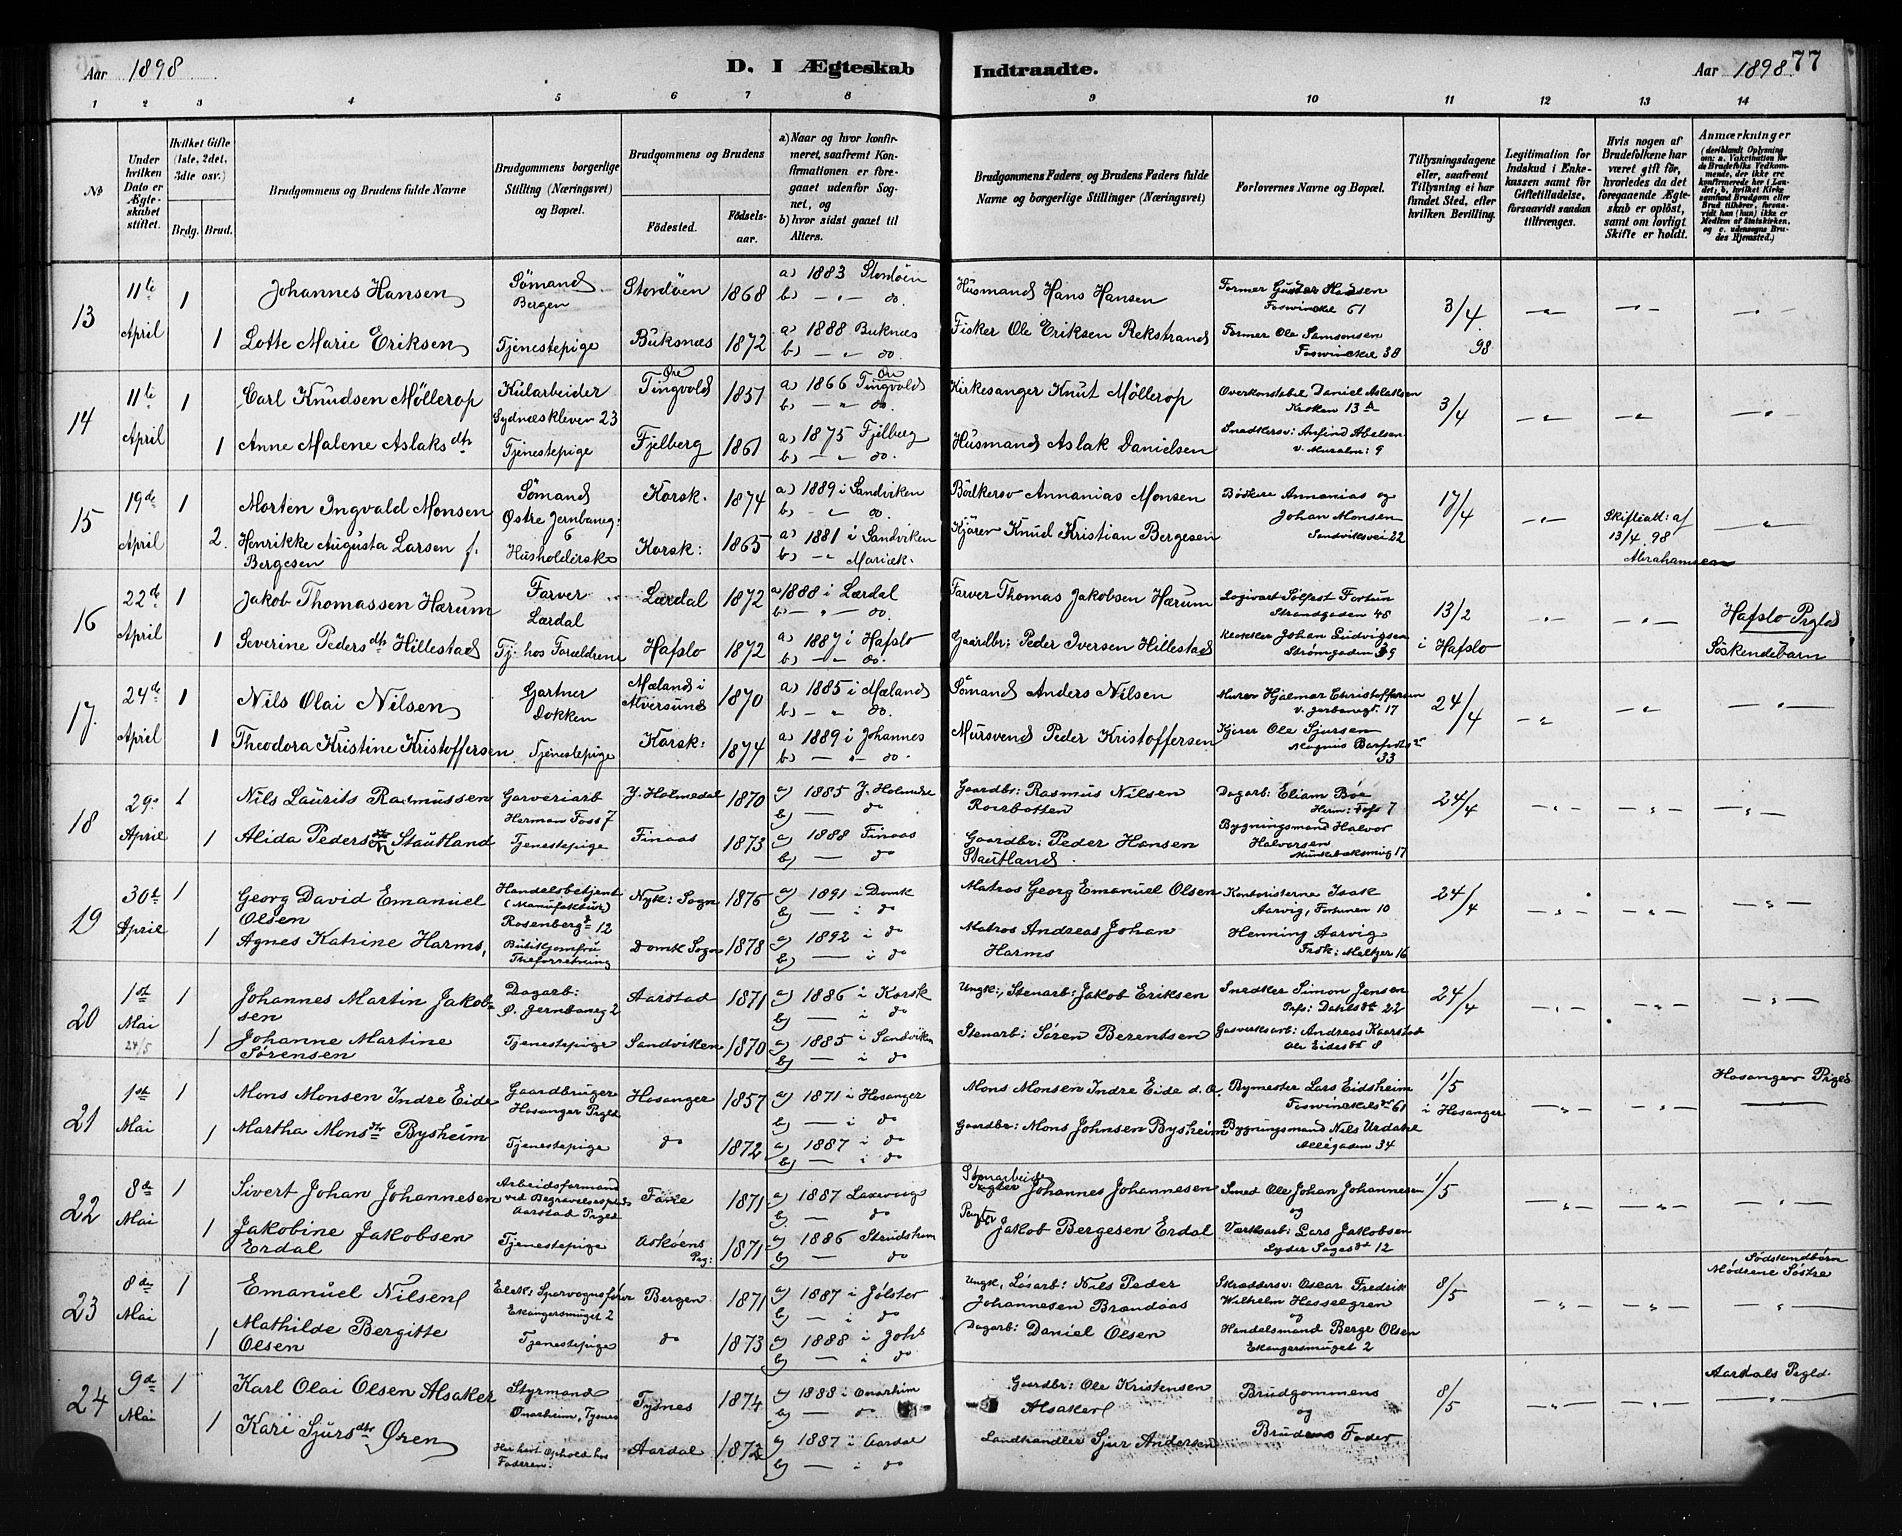 Aar 1898
D. I Ægteskab
Indtraadte.
Aar 1898
77
1 2 3 4 5 6 7 8 9 10 11 12 13 14
No
Under hvilken Dato er Ægteskabet stiftet.
Hvilket Gifte (1ste, 2det, 3die osv.)
Brdg. Brud.
Brudgommens og Brudens fulde Navne
Brudgommens borgerlige Stilling (Næringsvei) og Bopæl.
Brudgommens og Brudens
Fødested.
Fødselsaar.
a) Naar og hvor konfirmeret, saafremt Konfirmationen er foregaaet udenfor Sognet, og b) hvor sidst gaaet til Alters.
Brudgommens Faders og Brudens Faders fulde Navne og borgerlige Stillinger (Næringsvei)
Forlovernes Navne og Bopæl.
Tillysningsdagene eller, saafremt Tillysning ei har fundet Sted, efter hvilken Bevilling.
Legitimation for Indskud i Enkekassen samt for Giftetilladelse, forsaavidt saadan tiltrænges.
Hvis nogen af Brudefolkene har været gift før, hvorledes da det foregaaende Ægteskab er opløst, samt om lovligt Skifte er holdt.
Anmærkninger (deriblandt Oplysning om: a. Vakcination for de Brudefolks Vedkommende, der ikke ere konfirmerede her i Landet; b. hvilket Kirkesamfund Brudgom eller Brud tilhører, forsaavidt han (hun) ikke er Medlem af Statskirken, og c. udensogns Brudes Hjemsted.)
13 11te April 1 Johannes Hansen Sømand Bergen Stordøen 1868 a) 1883 Stordøen b) — " — do. Husmand Hans Hansen Former Hansen Foswinckel 61 3/4 98
1 Lotte Marie Eriksen Tjenestepige Buksnæs 1872 a) 1888 Buknæs b) — " — do. Fisker Ole Eriksen Rekstrand Former Ole Samsonsen Foswinckel 38
14 11te April 1 Carl Knudsen Möllerop Kularbeider Sydneskleven 23 Øre Tingvold 1851 a) 1866 Øre Tingvold b) — " — do. Kirkesanger Knut Möllerop Overkonstabel Daniel Aslaksen Kroken 13 A 3/4
1 Anne Malene Aslaksdtr Tjenestepige Fjelberg 1861 a) 1875 Fjelberg b) — " — do. Husmand Aslak Danielsen Snedkersv: Anfind Abelsen v. Muralm: 9
15 19de April 1 Morten Ingvald Monsen Sømand Østre Jernbaneg: 6 Korsk. 1874 a) 1889 i Sandviken b) — " — do. Bödkersv Annanias Monsen Bödkere Annanias og Johan Monsen Sandviksvei 22 17/4 Skifteatt: af 13/4 98 Abrahamsen
2. Henrikke Augusta Larsen f. Bergesen Husholderske Korsk: 1865 a) 1881 i Sandviken b) — " Mariæk. Kjörer Knud Kristian Bergesen
16 22de April 1 Jakob Thomassen Hærum Farver Lærdal Lærdal 1872 a) 1888 i Lærdal b) — " — do. Farver Thomas Jakobsen Hærum Logivært Solfest Fortun Strandgaden 45 13/2 i Hafslo Hafslo Prgld Söskendebarn
1 Severine Pedersdtr Hillestad Tj. hos Forældrene Hafslo 1872 a) 1887 i Hafslo b) — " — do. Gaardbr: Peder Iversen Hillestad Klokker Johan Ludvigsen Strömgaden 39
17. 24de April 1 Nils Olai Nilsen Gartner Dokken Mæland i Alversund 1870 a) 1885 i Mæland b) — " — do. Sømand Anders Nilsen Murer Hjalmar Christoffersen v. Jernbanegt. 17 24/4
1 Theodora Kristine Kristoffersen Tjenestepige Korsk: 1874 a) 1889 i Johannes b) — " — do. Mursvend Peder Kristoffersen Kjører Ole Sjursen Magnus Barfodtsgt 33
18 29. April 1 Nils Laurits Rasmussen Garveriarb Herman Foss 7 Y. Holmedal 1870 a) 1885 Y. Holmdl b) — do Gaardbr: Rasmus Nilsen Dagarb: Eliam Böe Herm: Foss 7 24/4
1 Alida Pedersdtr Stautland Tjenestepige Finaas 1873 a) 1888 Finaas b) — do Gaardbr: Peder Hansen Stautland. Bygningsmand Halvor Halversen 17
19 30te April 1 Georg David Emanuel Olsen Handelsbetjent (Manufaktur) Rosenbergg 12 Nyk: Sogn 1876 a) 1891 i Domk b) — i do Matros Georg Emanuel Olsen Kontoristerne Isak Aarvig, Fortunen 10 24/4
1 Agnes Katrine Harms, Butikjomfru Theforretning Domk Sogn 1878 a) 1892 i do b) — i do Matros Andreas Johan Harms Henning Aarvig Frøk: Meltzer 16
20 1ste Mai 24/5 1 Johannes Martin Jakobsen Dagarb: Ø. Jernbaneg 2 Aarstad 1871 a) 1886 i Korsk b) — i do Ungk:, Stenarb: Jakob Eriksen Snedker Simon Jensen Prfs: Dahls gt 22 24/4
1 Johanne Martine Sørensen Tjenestepige Sandviken 1870 a) 1885 i Sandviken b) — i do Stenarb: Søren Berentsen Gasverksarb: Andreas Kaarstad Ole Eides gt 8
21 1ste Mai 1 Mons Monsen Indre Eide Gaardbruger Hosanger Prgld Hosanger 1857 a) 1871 i Hosanger b) — i do Mons Monsen Indre Eide d. Æ. Bymester Lars Eidsheim Foswinckelsgt 61 1/5 i Hosanger Hosanger Prgld
1 Martha Monsdtr Bysheim Tjenestepige do 1872 a) 1887 i do b) — i do Gaardbr: Mons Johnsen Bysheim Bygningsmand Nils Urdahl Allégaden 34
22 8de Mai 1 Sivert Johan Johannesen Arbeidsformand ved Begravelsespladsen Aarstad Prgld 1871 a) 1887 b) — do Stenarbeider Johannes Johannesen Smed Ole Johan Johannesen og 1/5
1 Jakobine Jakobsen Erdal Tjenestepige Askøens Prg: 1871 a) 1886 Strudshm b) — do Jakob Bergesen Erdal Værksarb: Lars Jakobsen Lyder Sagens gt 12
23 8de Mai 1 Emanuel Nilsen Elek: Sporvognsfører Ekengersmuget 2 Bergen 1871 a) 1887 i Jølster b) — i do Ungk, Løsarb: Nils Peder Johannesen Brandaas Skrædersv: Oscar Fredrik Wilhelm Hasselgren og 8/5 Sødskendbørn Mødrene Søstre
1 Mathilde Bergitte Olsen Tjenestepige do 1873 a) 1888 i Johs b) — i do Dagarb: Daniel Olsen Handelsmand Berge Olsen Ekengersmuget 2
24 9de Mai 1 Karl Olai Olsen Alsaker Styrmand Onarheim, Tysnes Tysnes 1874 a) 1888 i Onarhim b) — do Gaardbr: Ole Kristensen Alsaker Brudgommens og 8/5 Aardals Prgld.
1 Kari Sjursdtr Øren Har havt Ophold hos Faderen. Aardal 1872 a) 1887 i Aardal b) — i do Landhandler Sjur Andersen Brudens Fader